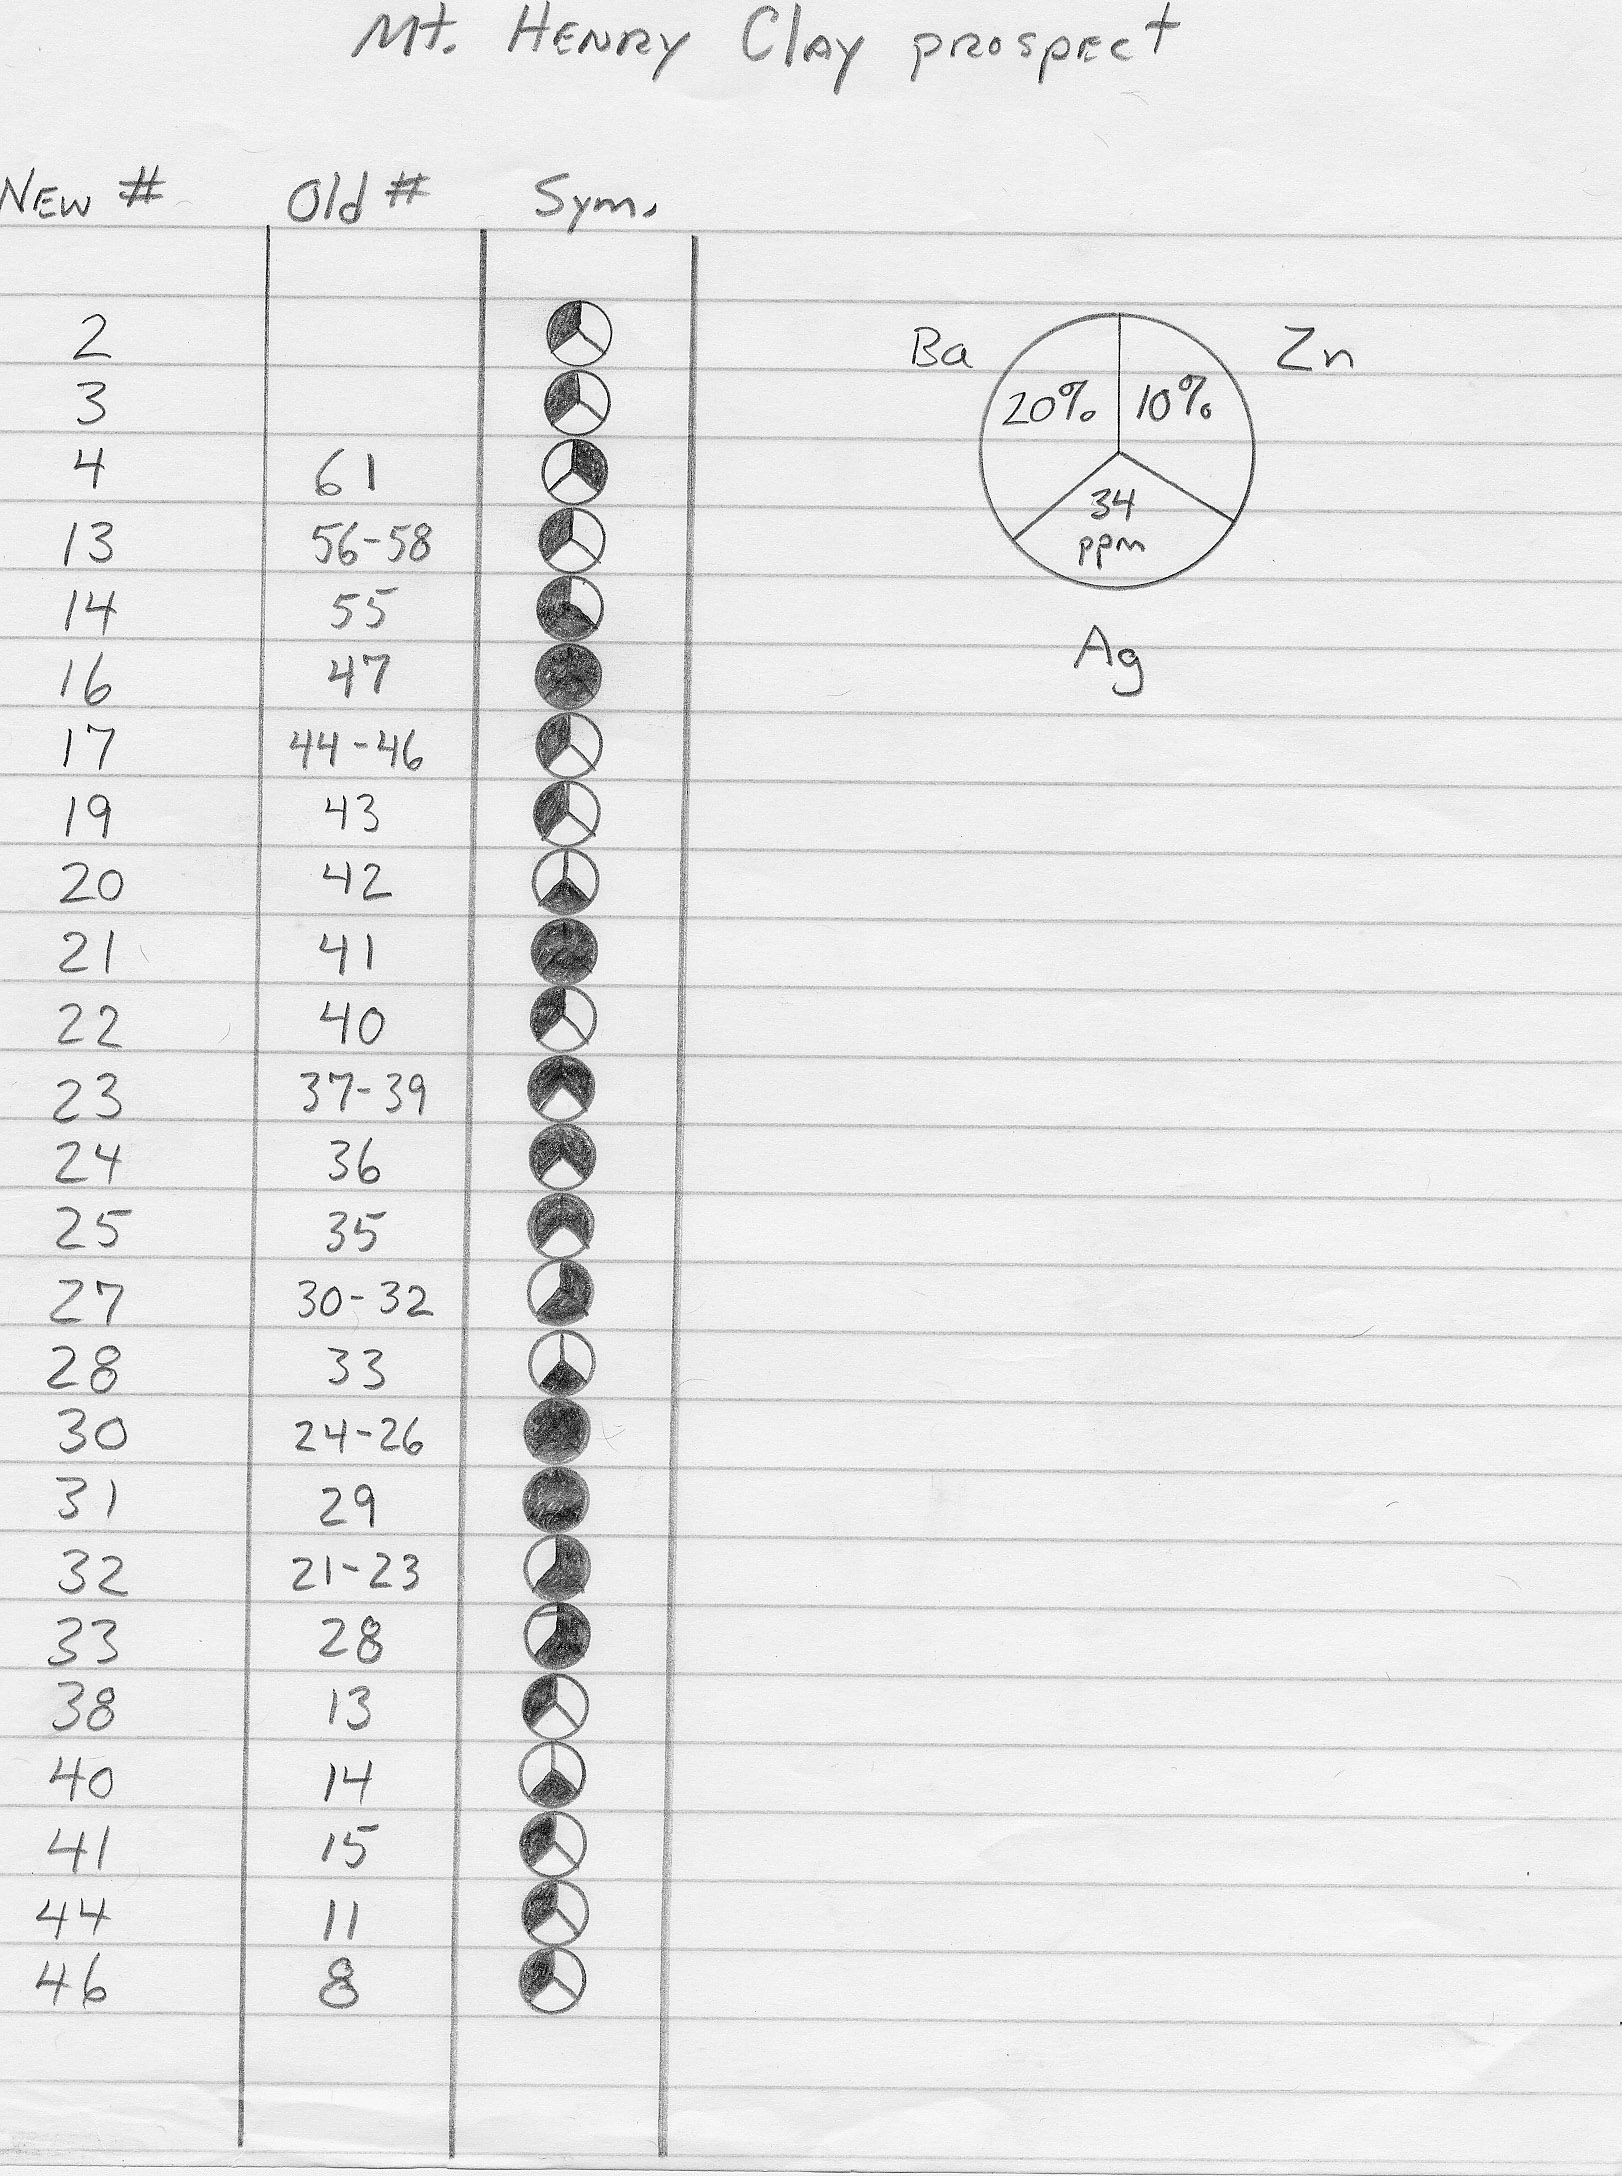 Mt. Henry Clay prospect
New # Old # Sym.
2
3
4 61
13 56-58
14 55
16 47
17 44-46
19 43
20 42
21 41
22 40
23 37-39
24 36
25 35
27 30-32
28 33
30 24-26
31 29
32 21-23
33 28
38 13
40 14
41 15
44 11
46 8
Ba Zn
20% 10%
34
ppm
Ag